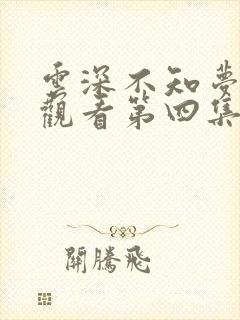 雲深不知夢
觀看第四集
開騰飛